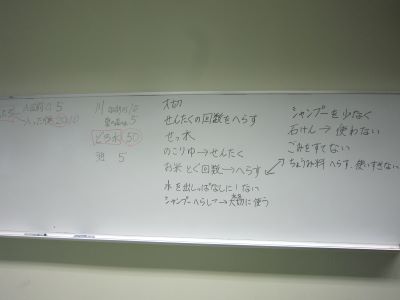 5
20
川
5
どろ水 50
池 5
大切
せんたくの回数をへらす
せっ水
のこりゆ→せんたく
お米とぐ回数→へらす
水を出しっぱなしにしない
シャンプーへらして→大切に使う
シャンプーを少なく
石けん→使わない
ごみをすてない
ちょうみ料へらす、使いすぎない